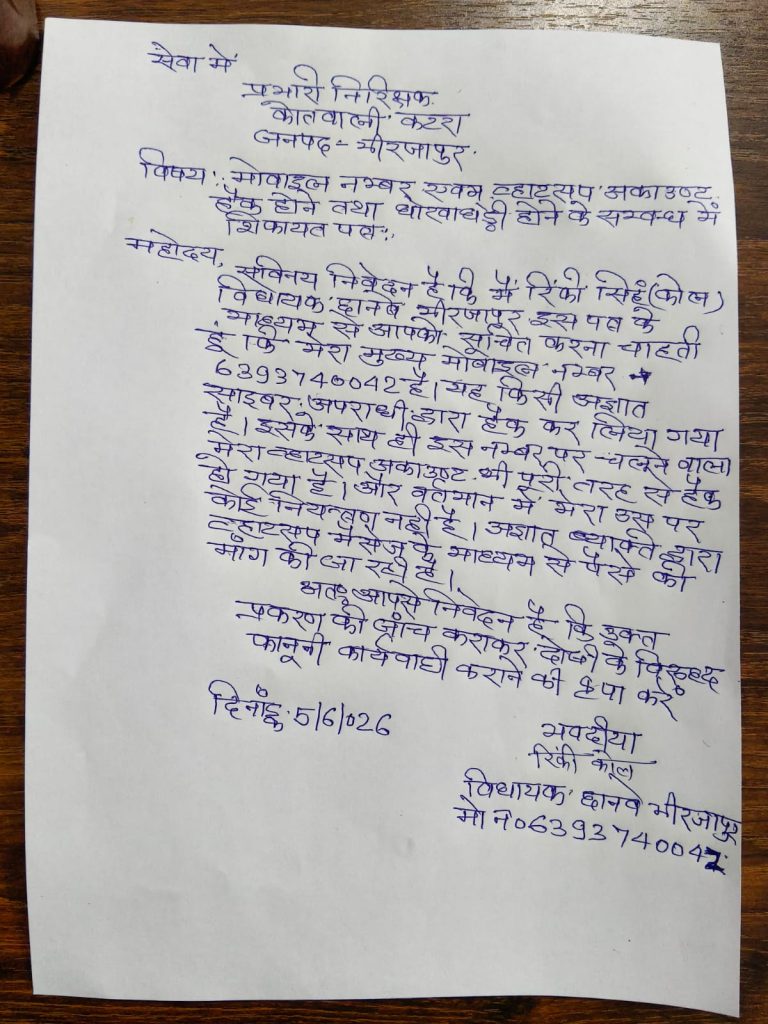 सेवा में
प्रभारी निरिक्षक
कोतवाली कटरा
जनपद - मीरजापुर
विषय:. मोबाइल नम्बर एवम व्हाट्सप अकाउण्ट
हैक होने तथा धोखाधड़ी होने के सम्बन्ध में
शिकायत पत्र:,
महोदय, सविनय निवेदन है कि मैं रिंकी सिंह (कोल)
विधायक छानबे मीरजापुर इस पत्र के
माध्यम से आपको सूचित करना चाहती
हूं कि मेरा मुख्य मोबाइल नम्बर
6393740042 है। यह किसी अज्ञात
साइबर अपराधी द्वारा हैक कर लिया गया
है। इसके साथ ही इस नम्बर पर चलने वाला
मेरा व्हाटसप अकाउण्ट भी पूरी तरह से हैक
हो गया है। और वर्तमान में मेरा उस पर
कोई नियन्त्रण नही है। अज्ञात व्यक्ति द्वारा
व्हाटसप मैसेज के माध्यम से पैसे की
मांग की जा रही है।
अतः आपसे निवेदन है कि उक्त
प्रकरण की जाँच कराकर दोषी के विरूद्ध
कानूनी कार्यवाही कराने की कृपा करें
दिनाँक 5/6/026
भवदीया
रिंकी कोल
विधायक छानबे मीरजापुर
मो न० 6393740042